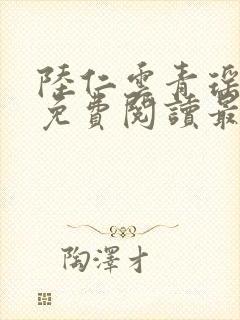 陸仁雲青瑶
免費閱讀最
陶澤才